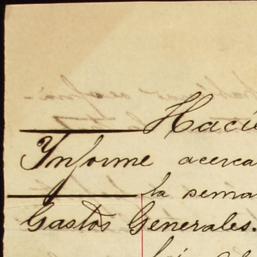 Haci
Informe acerca
la sema
Gastos Generales.